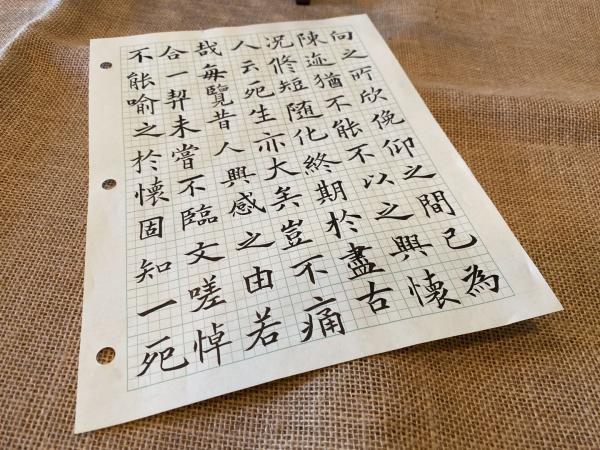 向之所欣俛仰之間已為
陳迹猶不能不以之興懷
況修短隨化終期於盡古
人云死生亦大矣豈不痛
哉每覽昔人興感之由若
合一契未嘗不臨文嗟悼
不能喻之於懷固知一死